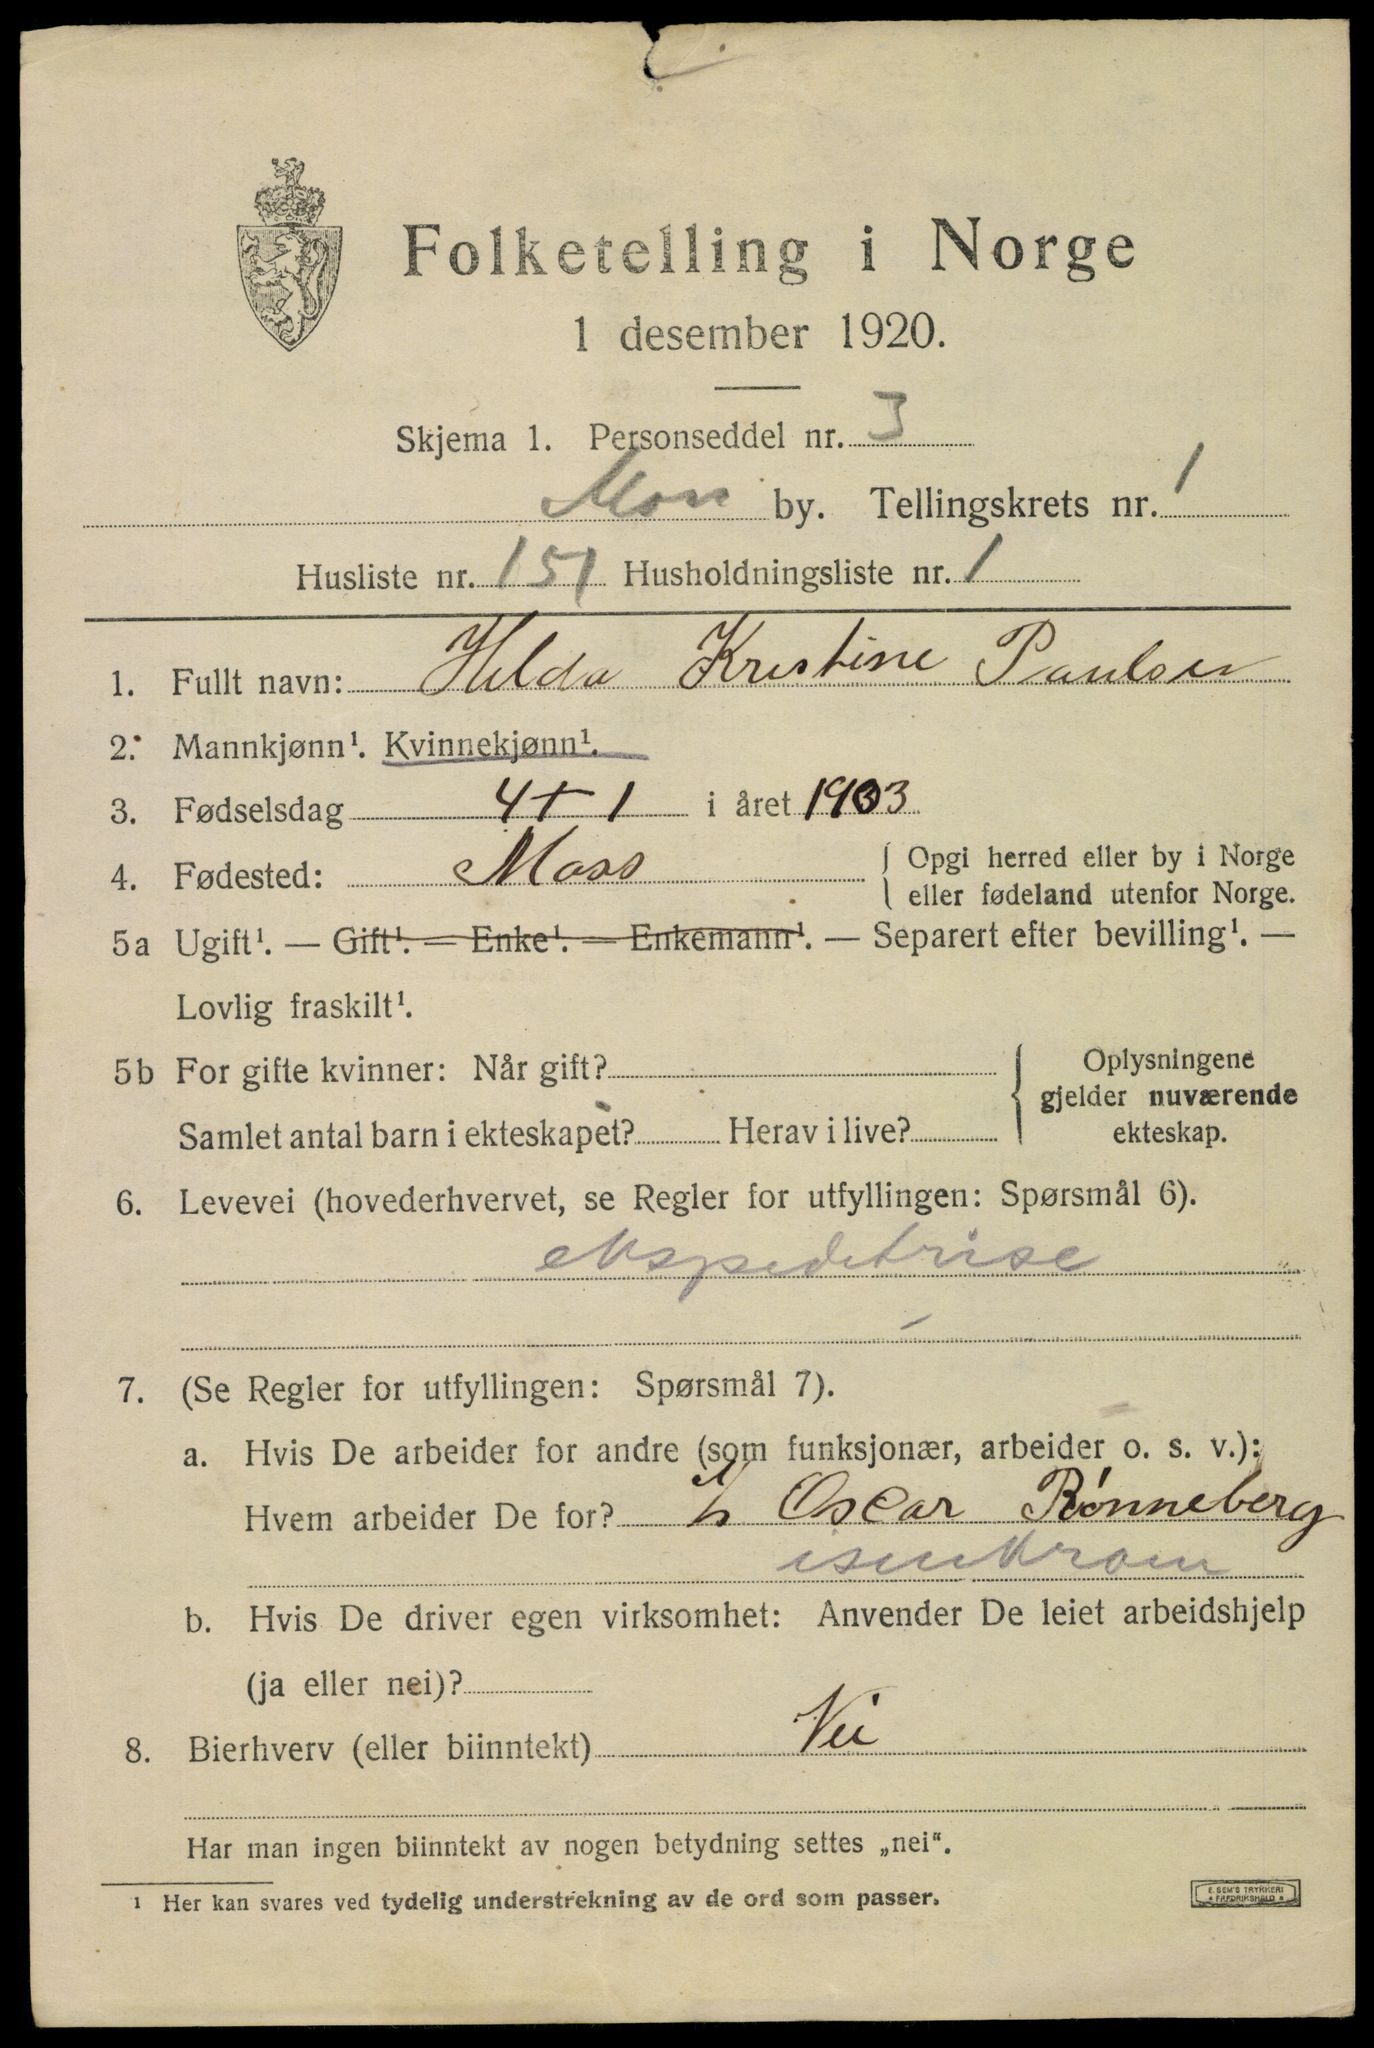 Folketelling i Norge
1 desember 1920.
Skjema 1. Personseddel nr. 3
Moss by. Tellingskrets nr. 1
Husliste nr. 151 Husholdningsliste nr. 1
1. Fullt navn: Hilda Kristine Paulsen
2. Mannkjønn¹. Kvinnekjønn¹.
3. Fødselsdag 4 + 1 i året 1903
4. Fødested: Moss { Opgi herred eller by i Norge
eller fødeland utenfor Norge.
5a Ugift¹. — Gift¹. — Enke¹. — Enkemann¹. — Separert efter bevilling¹. —
Lovlig fraskilt¹.
5b For gifte kvinner: Når gift? { Oplysningene
gjelder nuværende
Samlet antal barn i ekteskapet? Herav i live? ekteskap.
6. Levevei (hovederhvervet, se Regler for utfyllingen: Spørsmål 6).
ekspeditrise
7. (Se Regler for utfyllingen: Spørsmål 7).
a. Hvis De arbeider for andre (som funksjonær, arbeider o. s. v.):
Hvem arbeider De for? Oscar Rønneberg
isenkram
b. Hvis De driver egen virksomhet: Anvender De leiet arbeidshjelp
(ja eller nei)?
8. Bierhverv (eller biinntekt) Nei
Har man ingen biinntekt av nogen betydning settes „nei“.
¹ Her kan svares ved tydelig understrekning av de ord som passer.
E. SEM'S TRYKKERI
* FREDRIKSHALD *